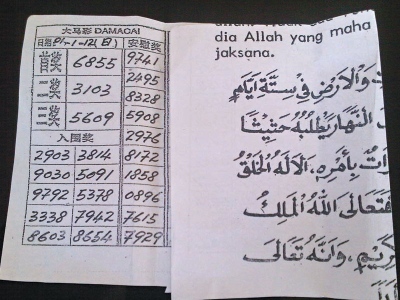 大马彩 DAMACAI
日期 安慰奖
首奖 6855 9741
2495
二奖 3103 8328
三奖 5609 5908
入围奖 2976
2903 3814 8172
9030 5091 1858
9792 5378 0896
3338 7942 7615
8603 8654 7929
dia Allah yang maha
jaksana.
وَالْاَرْضَ فِيْ سِتَّةِ اَيَّامٍ
النَّهَارَ يَطْلُبُهُ حَثِيْثًا
بِأَمْرِهِ، اَلَا لَهُ الْخَلْقُ
فَتَعَالَى اللهُ الْمَلِكُ
وَاَنَّهُ تَعَالَى